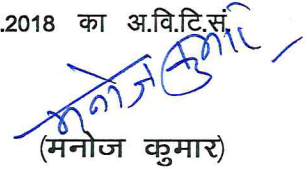 .2018 का अ.वि.टि.सं.
मनोज कुमार
(मनोज कुमार)